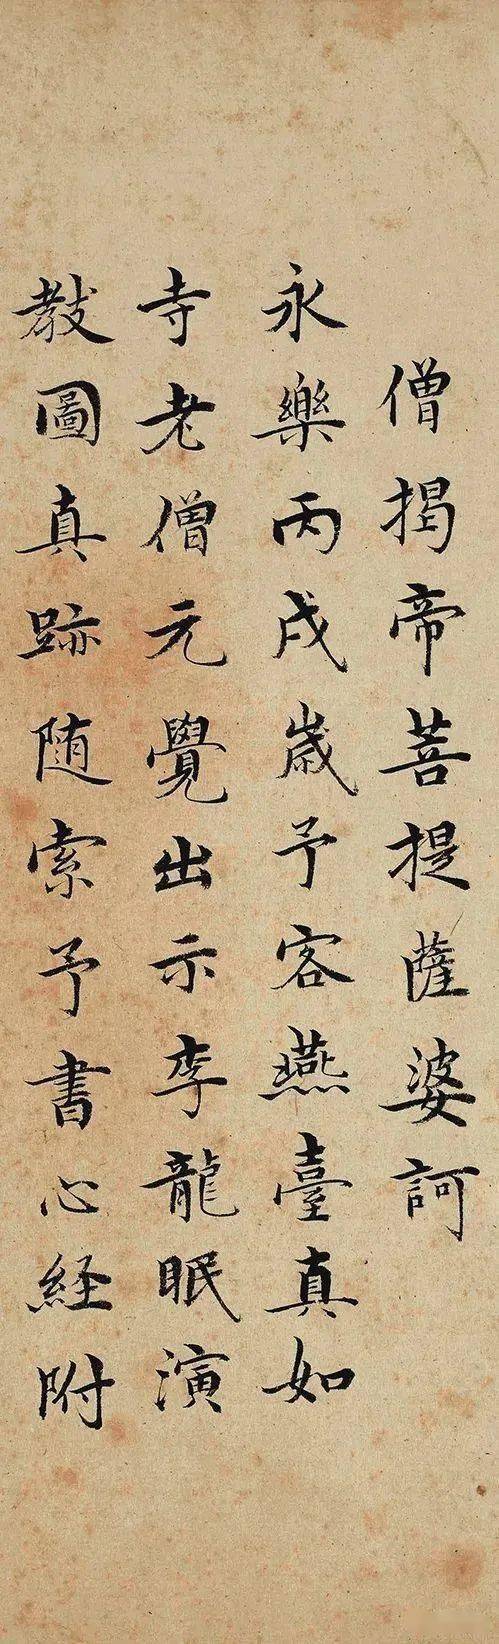 僧揭帝菩提薩婆訶
永樂丙戌歲予客燕臺真如
寺老僧元覺出示李龍眠演
教圖真跡随索予書心経附